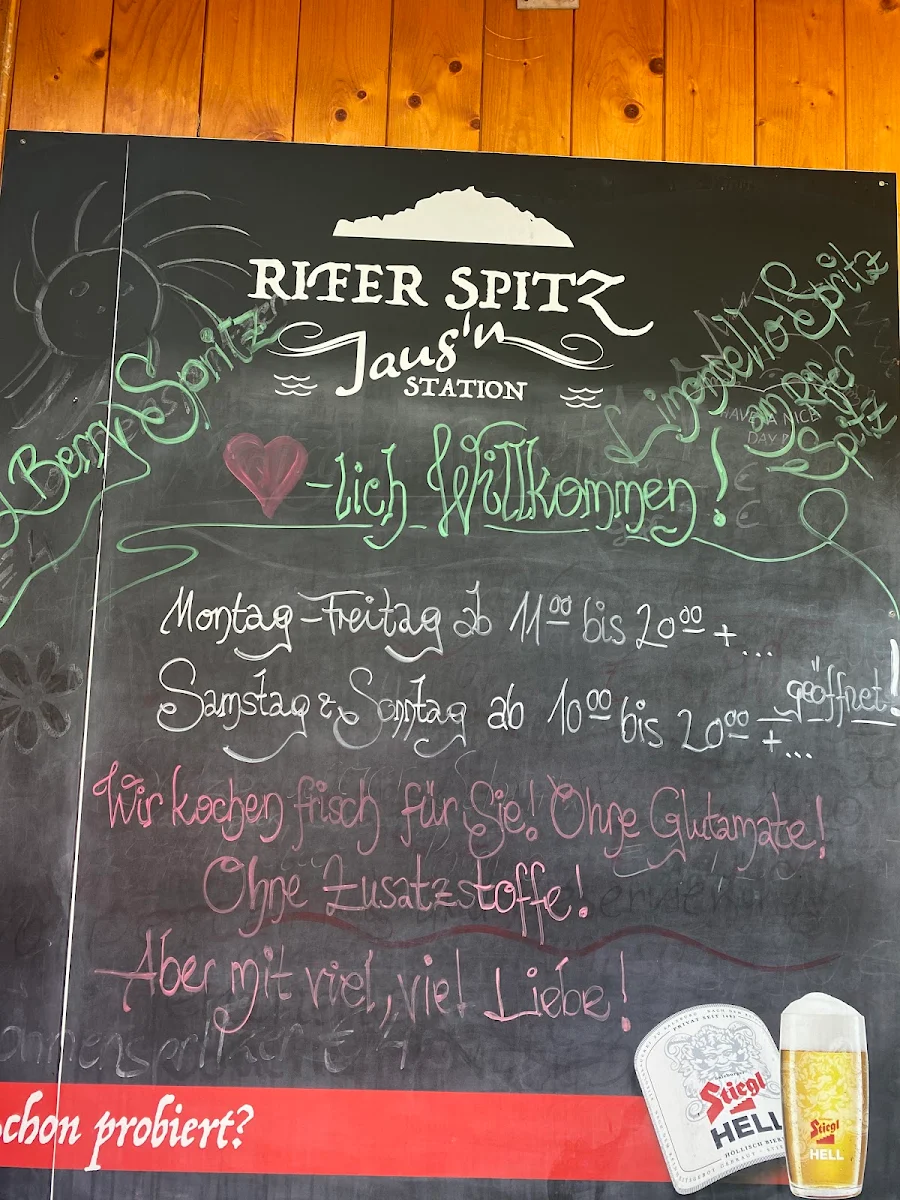 RIFER SPITZ
Jaus'n
STATION
Berry Spritzer
Limoncello Spritz
am Rifer
Spitz
HAVE A NICE
DAY
-lich Willkommen!
Montag-Freitag ab 11⁰⁰ bis 20⁰⁰ +...
Samstag & Sonntag ab 10⁰⁰ bis 20⁰⁰ +...
geöffnet!
Wir kochen frisch für Sie! Ohne Glutamate!
Ohne Zusatzstoffe!
Aber mit viel, viel Liebe!
schon probiert?
PRIVAT SEIT 1492
Stiegl
HELL
Stiegl
HELL